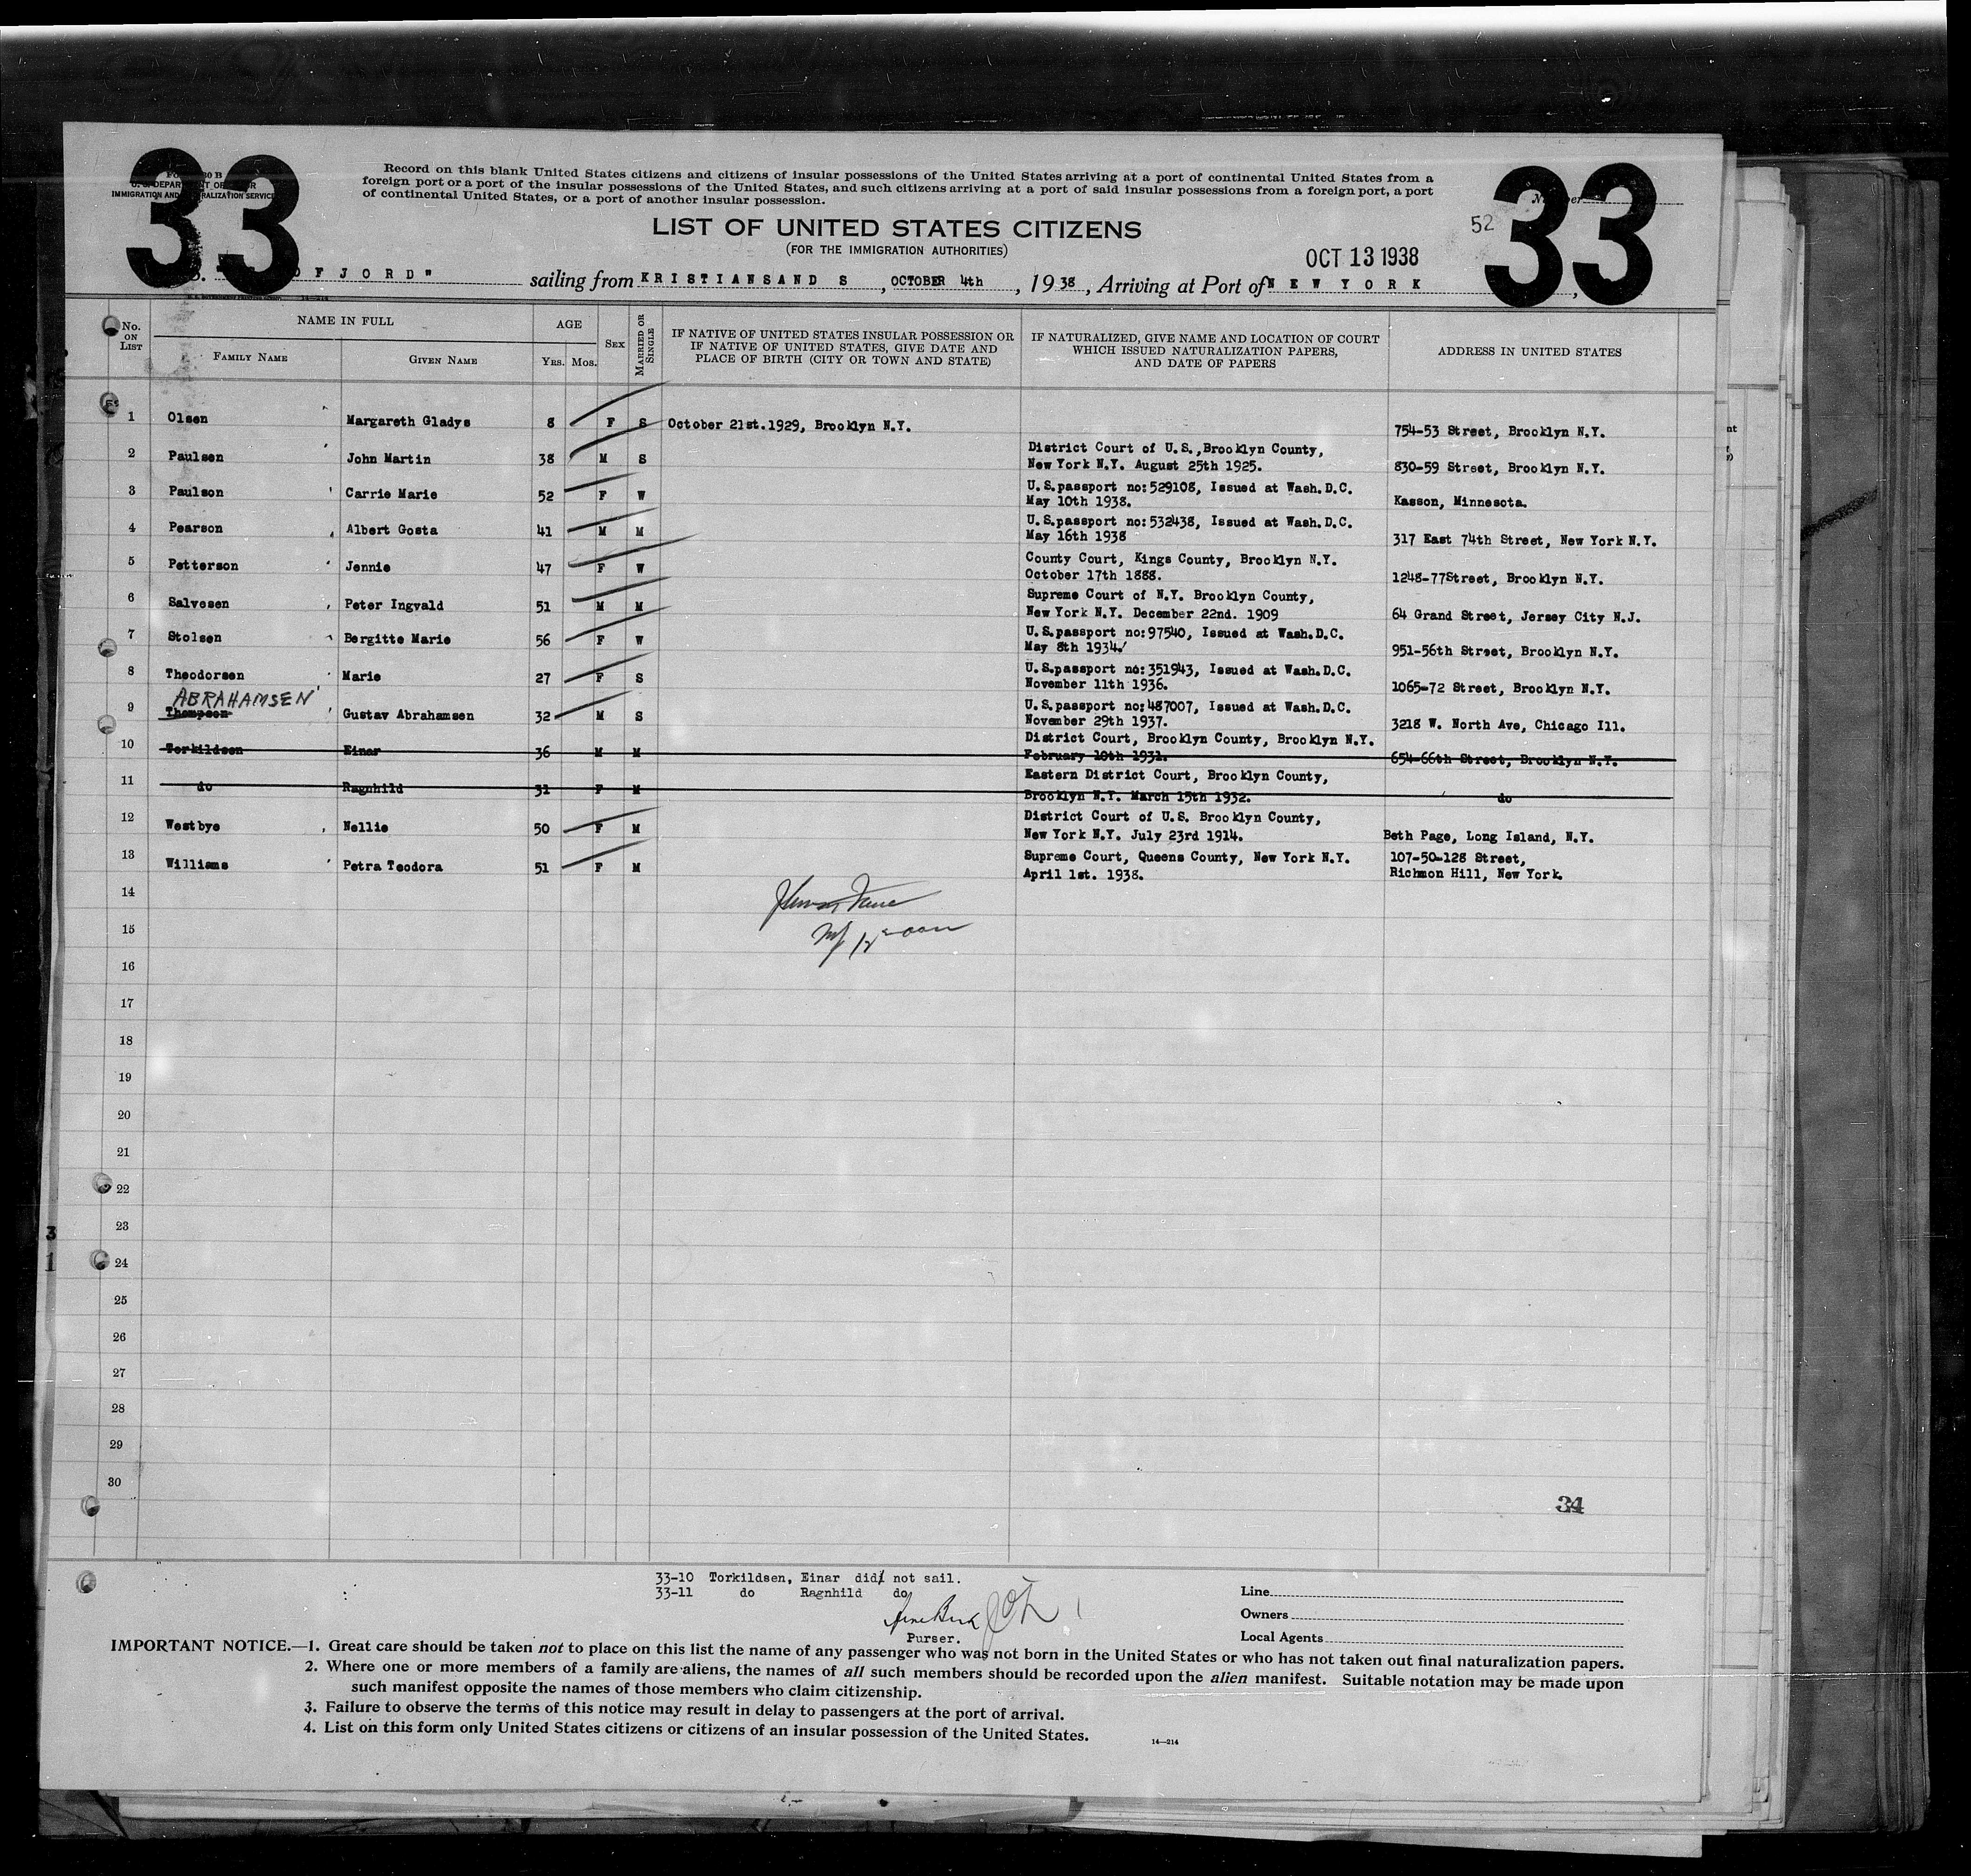 33
33
Record on this blank United States citizens and citizens of insular possessions of the United States arriving at a port of continental United States from a
foreign port or a port of the insular possessions of the United States, and such citizens arriving at a port of said insular possessions from a foreign port, a port
of continental United States, or a port of another insular possession.
IMMIGRATION AND
LIST OF UNITED STATES CITIZENS
(FOR THE IMMIGRATION AUTHORITIES)
52
OCT 13 1938
O F J O R D" sailing from KRISTIANSAND S, OCTOBER 4th, 1938, Arriving at Port of NEW YORK
No. ON LIST
NAME IN FULL
FAMILY NAME
GIVEN NAME
AGE
Yrs. Mos.
SEX
MARRIED OR SINGLE
IF NATIVE OF UNITED STATES INSULAR POSSESSION OR
IF NATIVE OF UNITED STATES, GIVE DATE AND
PLACE OF BIRTH (CITY OR TOWN AND STATE)
IF NATURALIZED, GIVE NAME AND LOCATION OF COURT
WHICH ISSUED NATURALIZATION PAPERS,
AND DATE OF PAPERS
ADDRESS IN UNITED STATES
1 Olsen Margareth Gladys 8 F S October 21st.1929, Brooklyn N.Y. 754-53 Street, Brooklyn N.Y.
2 Paulsen John Martin 38 M S District Court of U.S.,Brooklyn County,
New York N.Y. August 25th 1925. 830-59 Street, Brooklyn N.Y.
3 Paulson Carrie Marie 52 F W U.S.passport no:529108, Issued at Wash.D.C.
May 10th 1938. Kasson, Minnesota.
4 Pearson Albert Gosta 41 M M U.S.passport no:532438, Issued at Wash.D.C.
May 16th 1938 317 East 74th Street, New York N.Y.
5 Petterson Jennie 47 F W County Court, Kings County, Brooklyn N.Y.
October 17th 1888. 1248-77Street, Brooklyn N.Y.
6 Salvesen Peter Ingvald 51 M M Supreme Court of N.Y. Brooklyn County,
New York N.Y. December 22nd. 1909 64 Grand Street, Jersey City N.J.
7 Stolsen Bergitte Marie 56 F W U.S.passport no:97540, Issued at Wash.D.C.
May 8th 1934. 951-56th Street, Brooklyn N.Y.
8 Theodorsen Marie 27 F S U.S.passport no:351943, Issued at Wash.D.C.
November 11th 1936. 1065-72 Street, Brooklyn N.Y.
ABRAHAMSEN
9 Thompson Gustav Abrahamsen 32 M S U.S.passport no:487007, Issued at Wash.D.C.
November 29th 1937. 3218 W. North Ave, Chicago Ill.
10 Torkildsen Einar 36 M M District Court, Brooklyn County, Brooklyn N.Y.
February 10th 1931. 654-66th Street, Brooklyn N.Y.
11 do Ragnhild 31 F M Eastern District Court, Brooklyn County,
Brooklyn N.Y. March 15th 1932. do
12 Westbye Nellie 50 F M District Court of U.S. Brooklyn County,
New York N.Y. July 23rd 1914. Beth Page, Long Island, N.Y.
13 Williams Petra Teodora 51 F M Supreme Court, Queens County, New York N.Y. 107-50-128 Street,
April 1st. 1938. Richmon Hill, New York.
14
15
16
17
18
19
20
21
22
23
24
25
26
27
28
29
30
34
33-10 Torkildsen, Einar did not sail.
33-11 do Ragnhild do
Purser.
Line
Owners
Local Agents
IMPORTANT NOTICE.—1. Great care should be taken not to place on this list the name of any passenger who was not born in the United States or who has not taken out final naturalization papers.
2. Where one or more members of a family are aliens, the names of all such members should be recorded upon the alien manifest. Suitable notation may be made upon
such manifest opposite the names of those members who claim citizenship.
3. Failure to observe the terms of this notice may result in delay to passengers at the port of arrival.
4. List on this form only United States citizens or citizens of an insular possession of the United States.
14—214